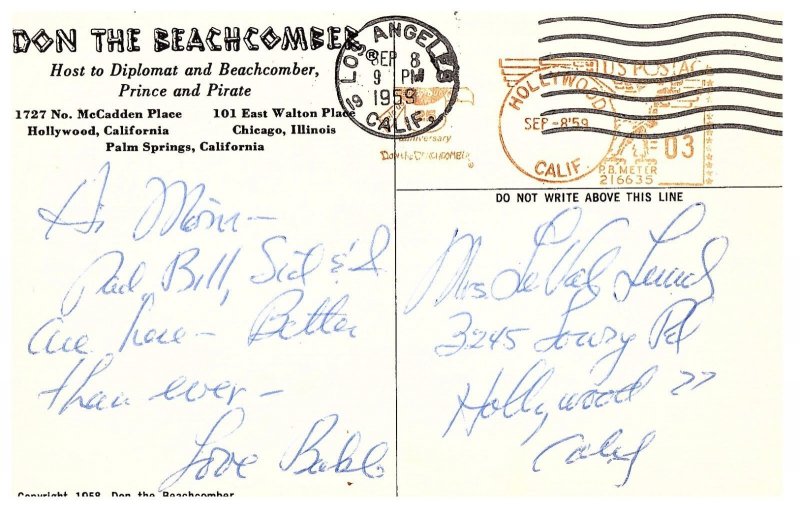 DON THE BEACHCOMBER
Host to Diplomat and Beachcomber,
Prince and Pirate
1727 No. McCadden Place
Hollywood, California
101 East Walton Place
Chicago, Illinois
Palm Springs, California
LOS ANGELES
SEP 8
9 PM
1959
CALIF.
anniversary
Don the Beachcomber
HOLLYWOOD
SEP-8'59
CALIF.
U.S. POSTAGE
03
P.B. METER
216635
DO NOT WRITE ABOVE THIS LINE
Hi Mom -
Bill, Sid & I
are here - Better
than ever -
Love
Mrs.
3245 Lowry Rd
Hollywood 27
Calif
Copyright 1958, Don the Beachcomber